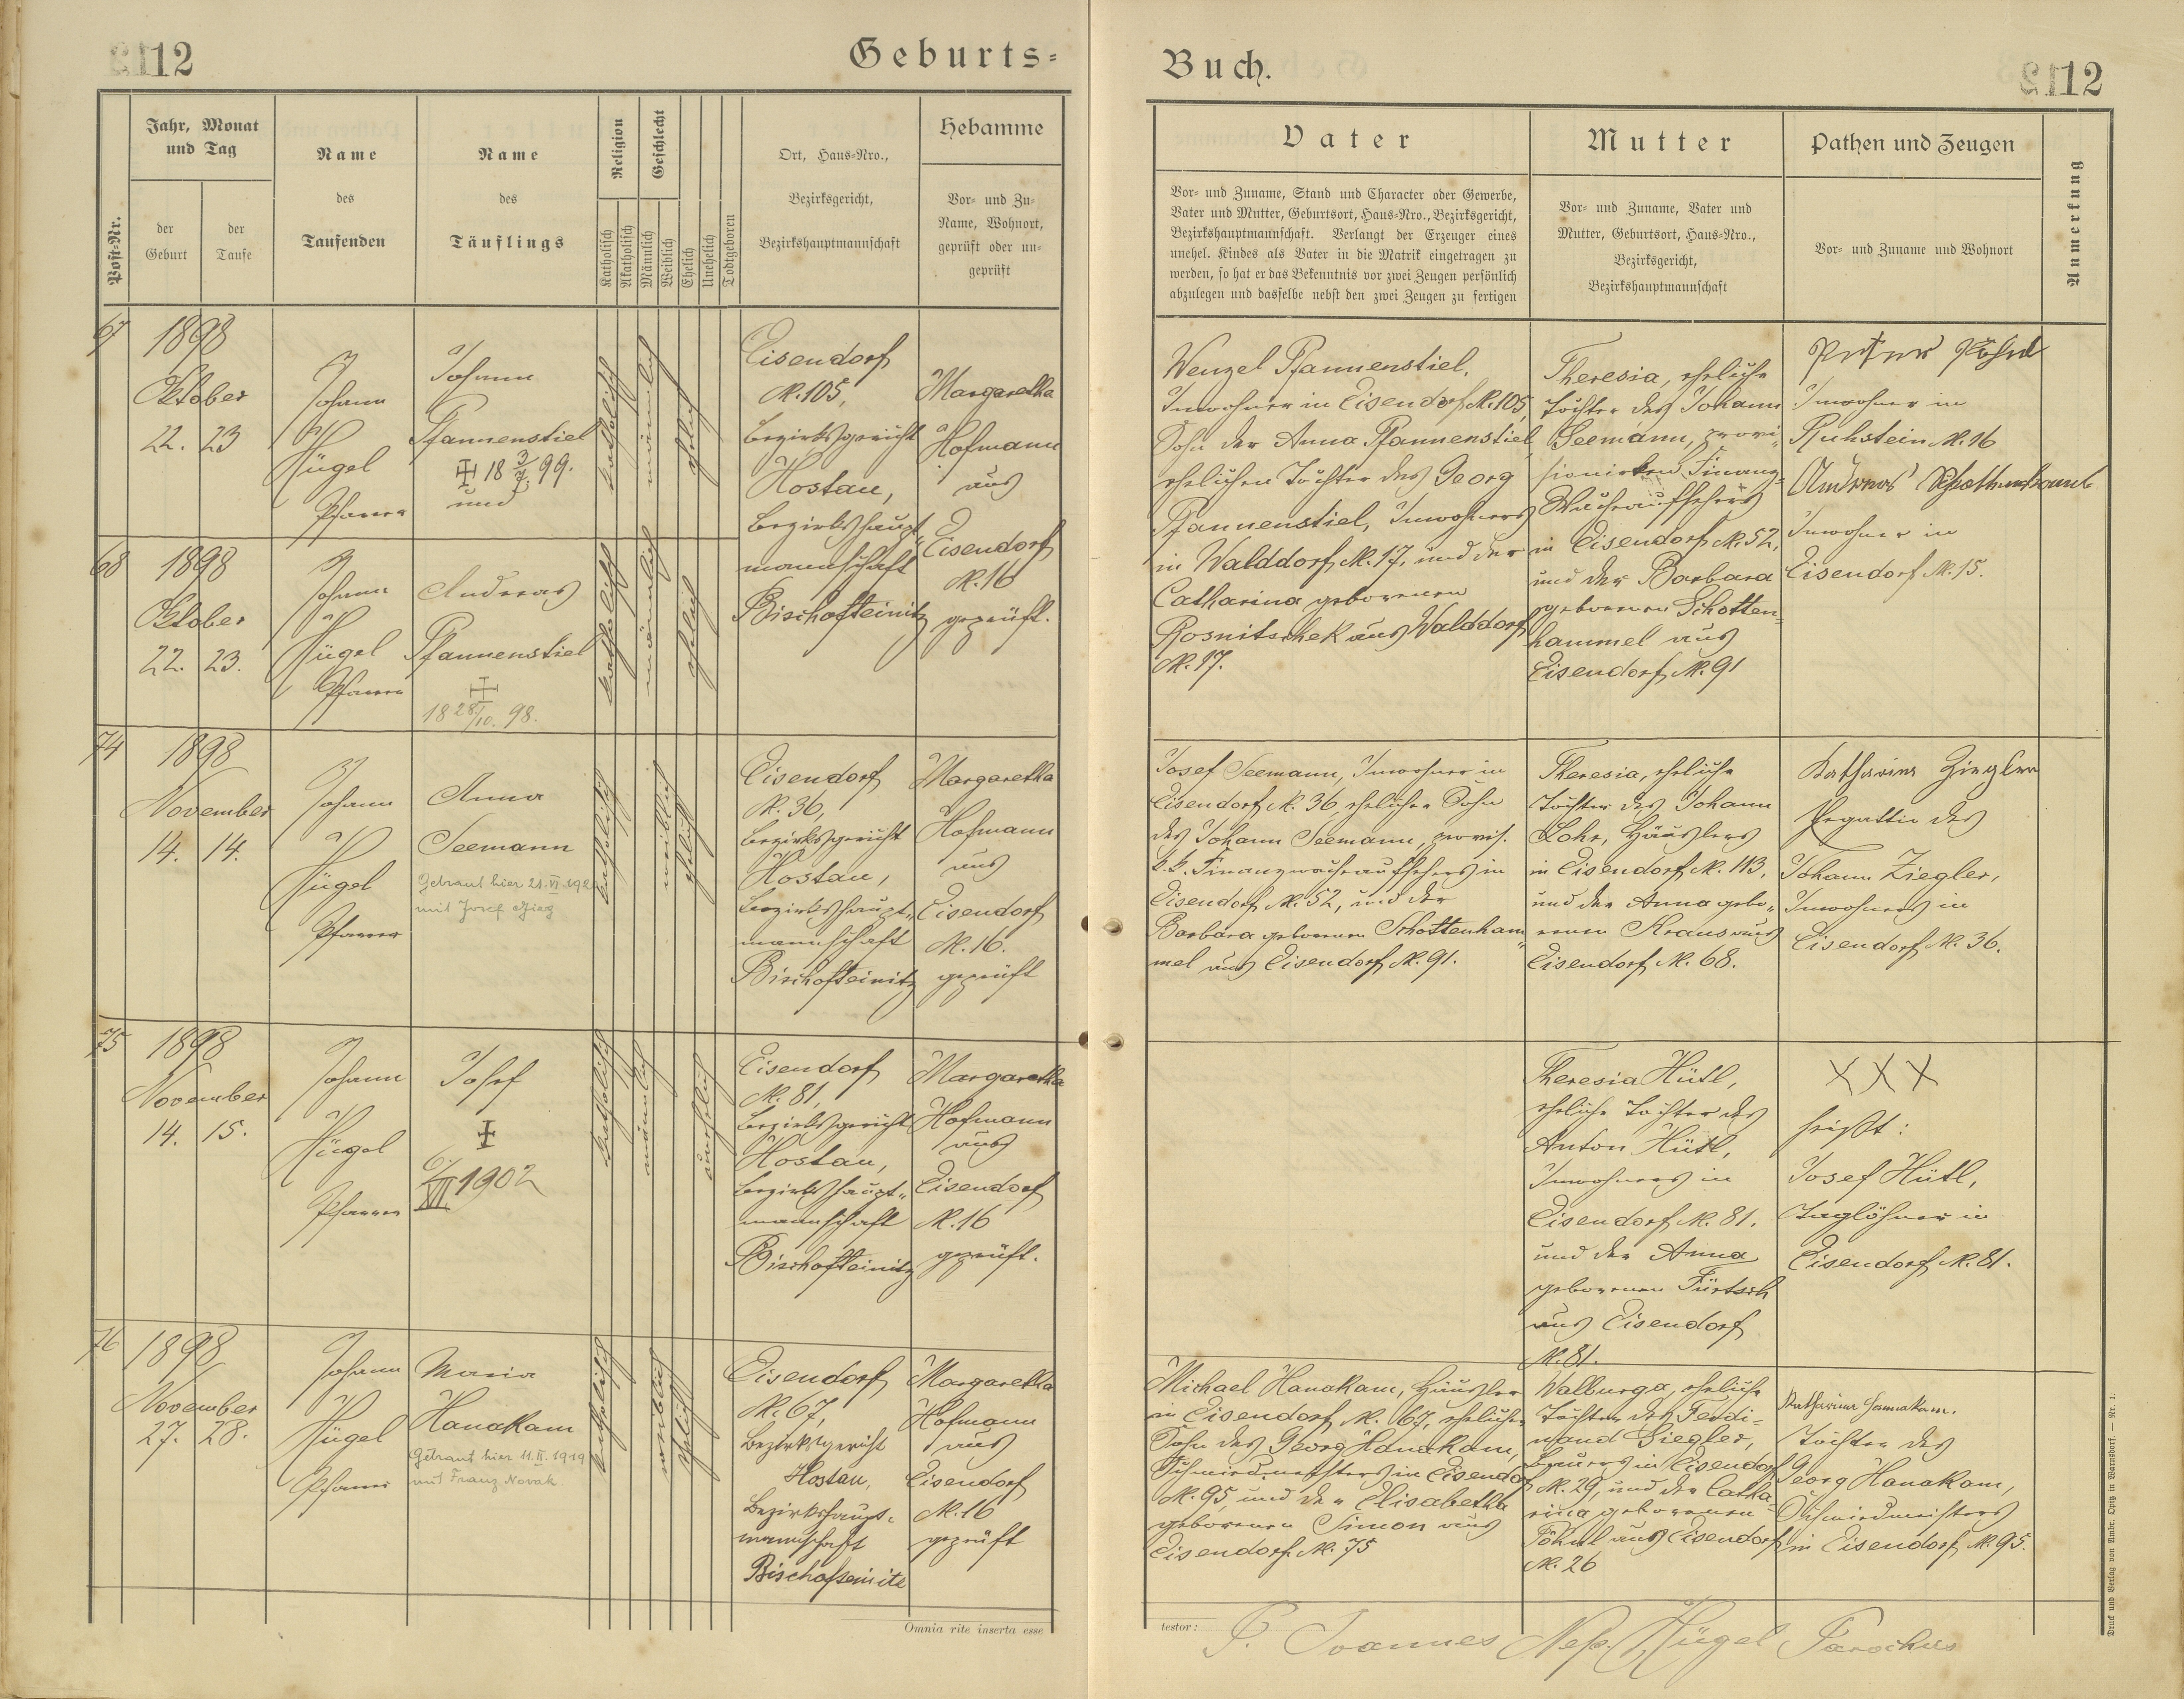 12
Geburts-
Post-Nr.
Jahr, Monat
und Tag
der
Geburt
der
Taufe
Name
des
Taufenden
Name
des
Täuflings
Religion
Katholisch
Akatholisch
Geschlecht
Männlich
Weiblich
Ehelich
Unehelich
Todtgeboren
Ort, Haus-Nro.,
Bezirksgericht,
Bezirkshauptmannschaft
Hebamme
Vor- und Zu-
Name, Wohnort,
geprüft oder un-
geprüft
67
1898
Oktober
22. 23
Johann
Hügel
Pfarrer
Johann
Pfannenstiel
18 3/7. 99.
und
katholisch
männlich
ehelich
Eisendorf
N. 105,
Bezirksgericht
Hostau,
Bezirkshaupt-
mannschaft
Bischofteinitz
Margaretha
Hofmann
aus
Eisendorf
N. 16
geprüft.
68
1898
Oktober
22. 23.
Johann
Hügel
Pfarrer
Andreas
Pfannenstiel
18 28/10. 98.
katholisch
männlich
ehelich
74
1898
November
14. 14.
Johann
Hügel
Pfarrer
Anna
Seemann
Getraut hier 21. VI. 192
mit Josef
katholisch
weiblich
ehelich
Eisendorf
N. 36,
Bezirksgericht
Hostau,
Bezirkshaupt-
mannschaft
Bischofteinitz
Margaretha
Hofmann
aus
Eisendorf
N. 16.
geprüft
75
1898
November
14. 15.
Johann
Hügel
Pfarrer
Josef
6./VII 1902
katholisch
männlich
unehelich
Eisendorf
N. 81,
Bezirksgericht
Hostau,
Bezirkshaupt-
mannschaft
Bischofteinitz
Margaretha
Hofmann
aus
Eisendorf
N. 16
geprüft.
76
1898
November
27. 28.
Johann
Hügel
Pfarrer
Maria
Hanakam
Getraut hier 11. II. 1919
mit Franz Novak.
katholisch
weiblich
ehelich
Eisendorf
N. 67,
Bezirksgericht
Hostau,
Bezirkshaupt-
mannschaft
Bischofseinitz
Margaretha
Hofmann
aus
Eisendorf
N. 16
geprüft
Omnia rite inserta esse
Buch.
12
Vater
Vor- und Zuname, Stand und Character oder Gewerbe,
Vater und Mutter, Geburtsort, Haus-Nro., Bezirksgericht,
Bezirkshauptmannschaft. Verlangt der Erzeuger eines
unehel. Kindes als Vater in die Matrik eingetragen zu
werden, so hat er das Bekenntnis vor zwei Zeugen persönlich
abzulegen und dasselbe nebst den zwei Zeugen zu fertigen
Mutter
Vor- und Zuname, Vater und
Mutter, Geburtsort, Haus-Nro.,
Bezirksgericht,
Bezirkshauptmannschaft
Pathen und Zeugen
Vor- und Zuname und Wohnort
Anmerkung
Wenzel Pfannenstiel,
Inwohner in Eisendorf N. 105,
Sohn der Anna Pfannenstiel,
ehelichen Tochter des Georg
Pfannenstiel, Inwohners
in Walddorf N. 17, und der
Catharina geborenen
Rosnitschek aus Walddorf
N. 17.
Theresia, eheliche
Tochter des Johann
Seemann, provi-
sionirten Finanz-
Wachaufsehers
in Eisendorf N. 52,
und der Barbara
geborenen Schotten-
hammel aus
Eisendorf N. 91
Peter
Inwohner in
Ruhstein N. 16
Andreas Schottenhaml
Inwohner in
Eisendorf N. 15.
Josef Seemann, Inwohner in
Eisendorf N. 36, ehelicher Sohn
des Johann Seemann, provis.
k. k. Finanzwachaufsehers in
Eisendorf N. 52, und der
Barbara geborenen Schottenham-
mel aus Eisendorf N. 91.
Theresia, eheliche
Tochter des Johann
Lohr, Häuslers
in Eisendorf N. 113,
und der Anna gebo-
renen Kraus aus
Eisendorf N. 68.
Katharina Ziegler
Ehegattin des
Johann Ziegler,
Inwohners in
Eisendorf N. 36.
Theresia Hütl,
eheliche Tochter des
Anton Hütl,
Inwohners in
Eisendorf N. 81.
und der Anna
geborenen Fürtsch
aus Eisendorf
N. 81.
XXX
heißt:
Josef Hütl,
Taglöhner in
Eisendorf N. 81.
Michael Hanakam, Häusler
in Eisendorf N. 67, ehelicher
Sohn des Georg Hanakam,
Schmiedmeisters in Eisendorf
N. 95, und der Elisabetha
geborenen Simon aus
Eisendorf N. 75
Walburga, eheliche
Tochter des Ferdi-
nand Ziegler,
Bauers in Eisendorf
N. 29, und der Catha-
rina geborenen
Pöhnl aus Eisendorf
N. 26
Katharina Hannakam.
Tochter des
Georg Hanakam,
Schmiedmeisters
in Eisendorf N. 95.
testor:
P. Joannes Nep. Hügel Parochus
Druck und Verlag von Ambr. Opitz in Warnsdorf. — Nr. 1.